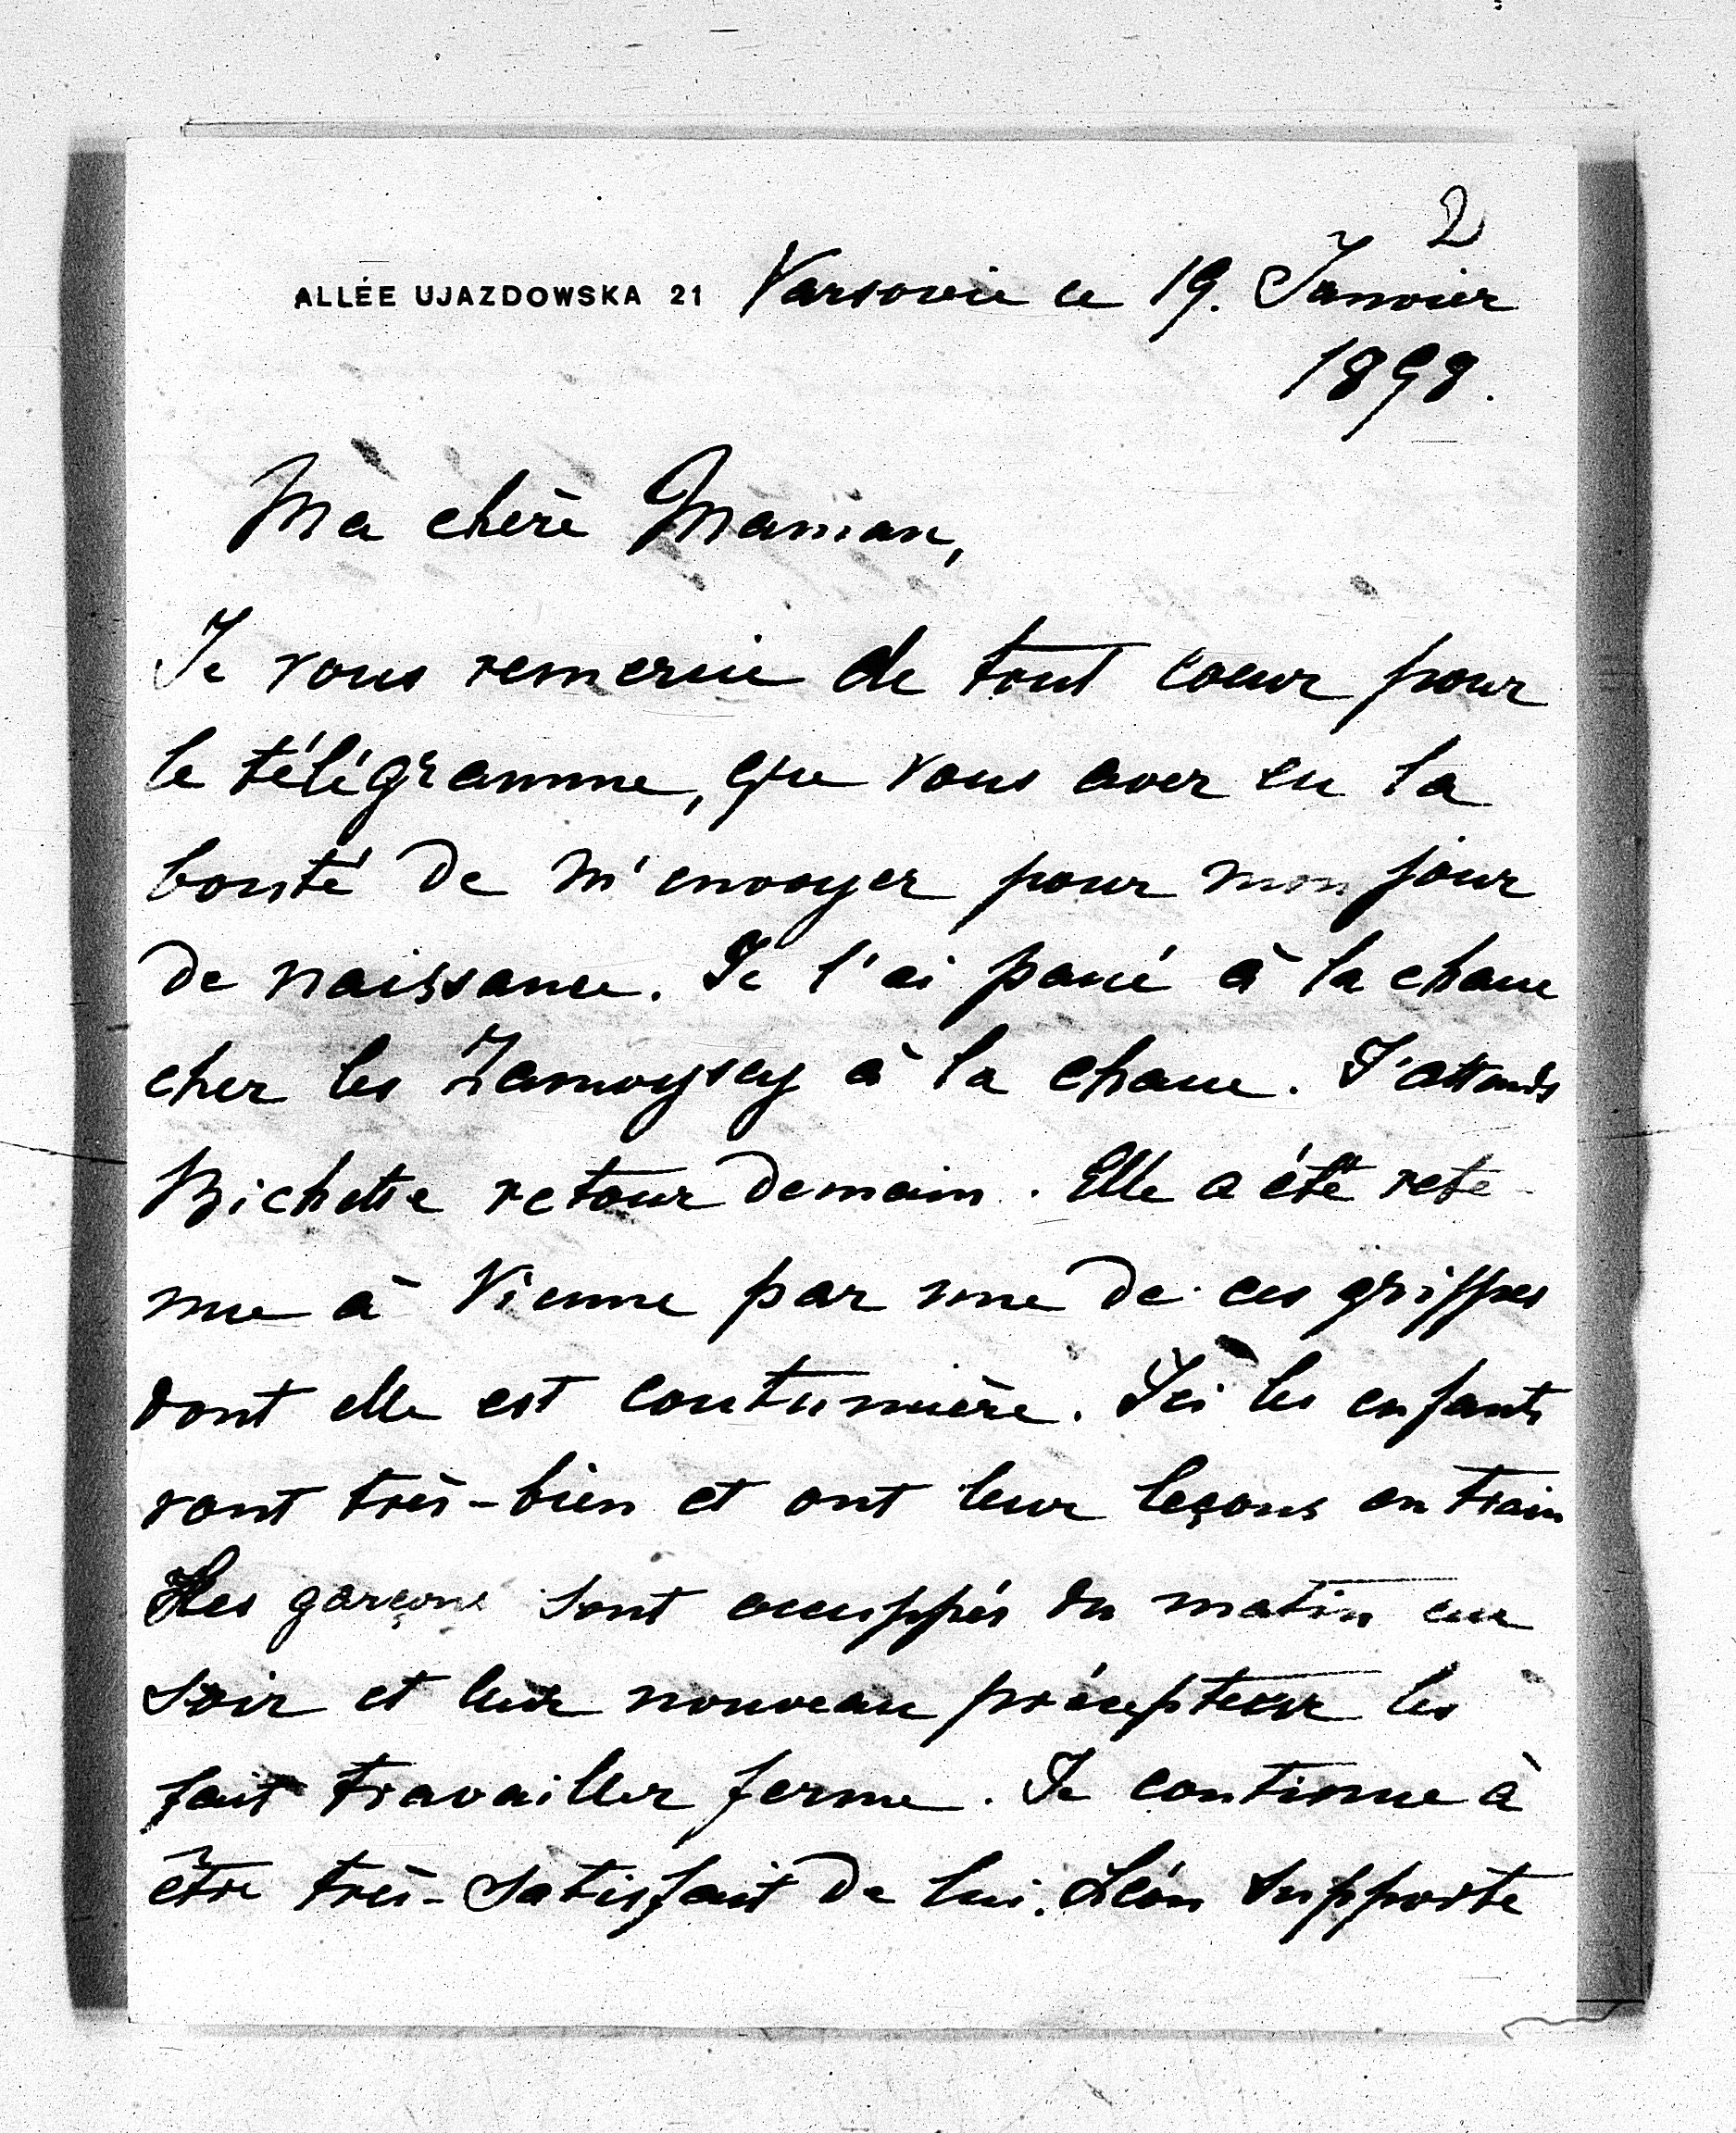 2
ALLÉE UJAZDOWSKA 21 Varsovie ce 19. Janvier
1898.
Ma chère Maman,
Je vous remercie de tout coeur pour
le télégramme, que vous avez eu la
bonté de m'envoyer pour mon jour
de naissance. Je l'ai passé à la chasse
chez les Zamoyscy à la chasse. J'attends
Bichette retour demain. Elle a été rete-
nue à Vienne par une de ces grippes
dont elle est coutumière. Ici les enfants
vont très-bien et ont leur leçons en train
Les garçons sont occuppés du matin au
soir et leur nouveau précepteur les
fait travailler ferme. Je continue à
être très-satisfait de lui. Léon supporte